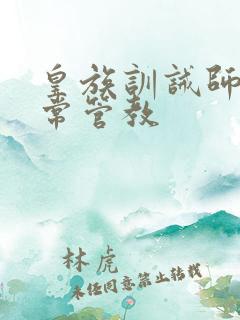 皇族訓誡師
常管教
林虎
未经同意禁止转载